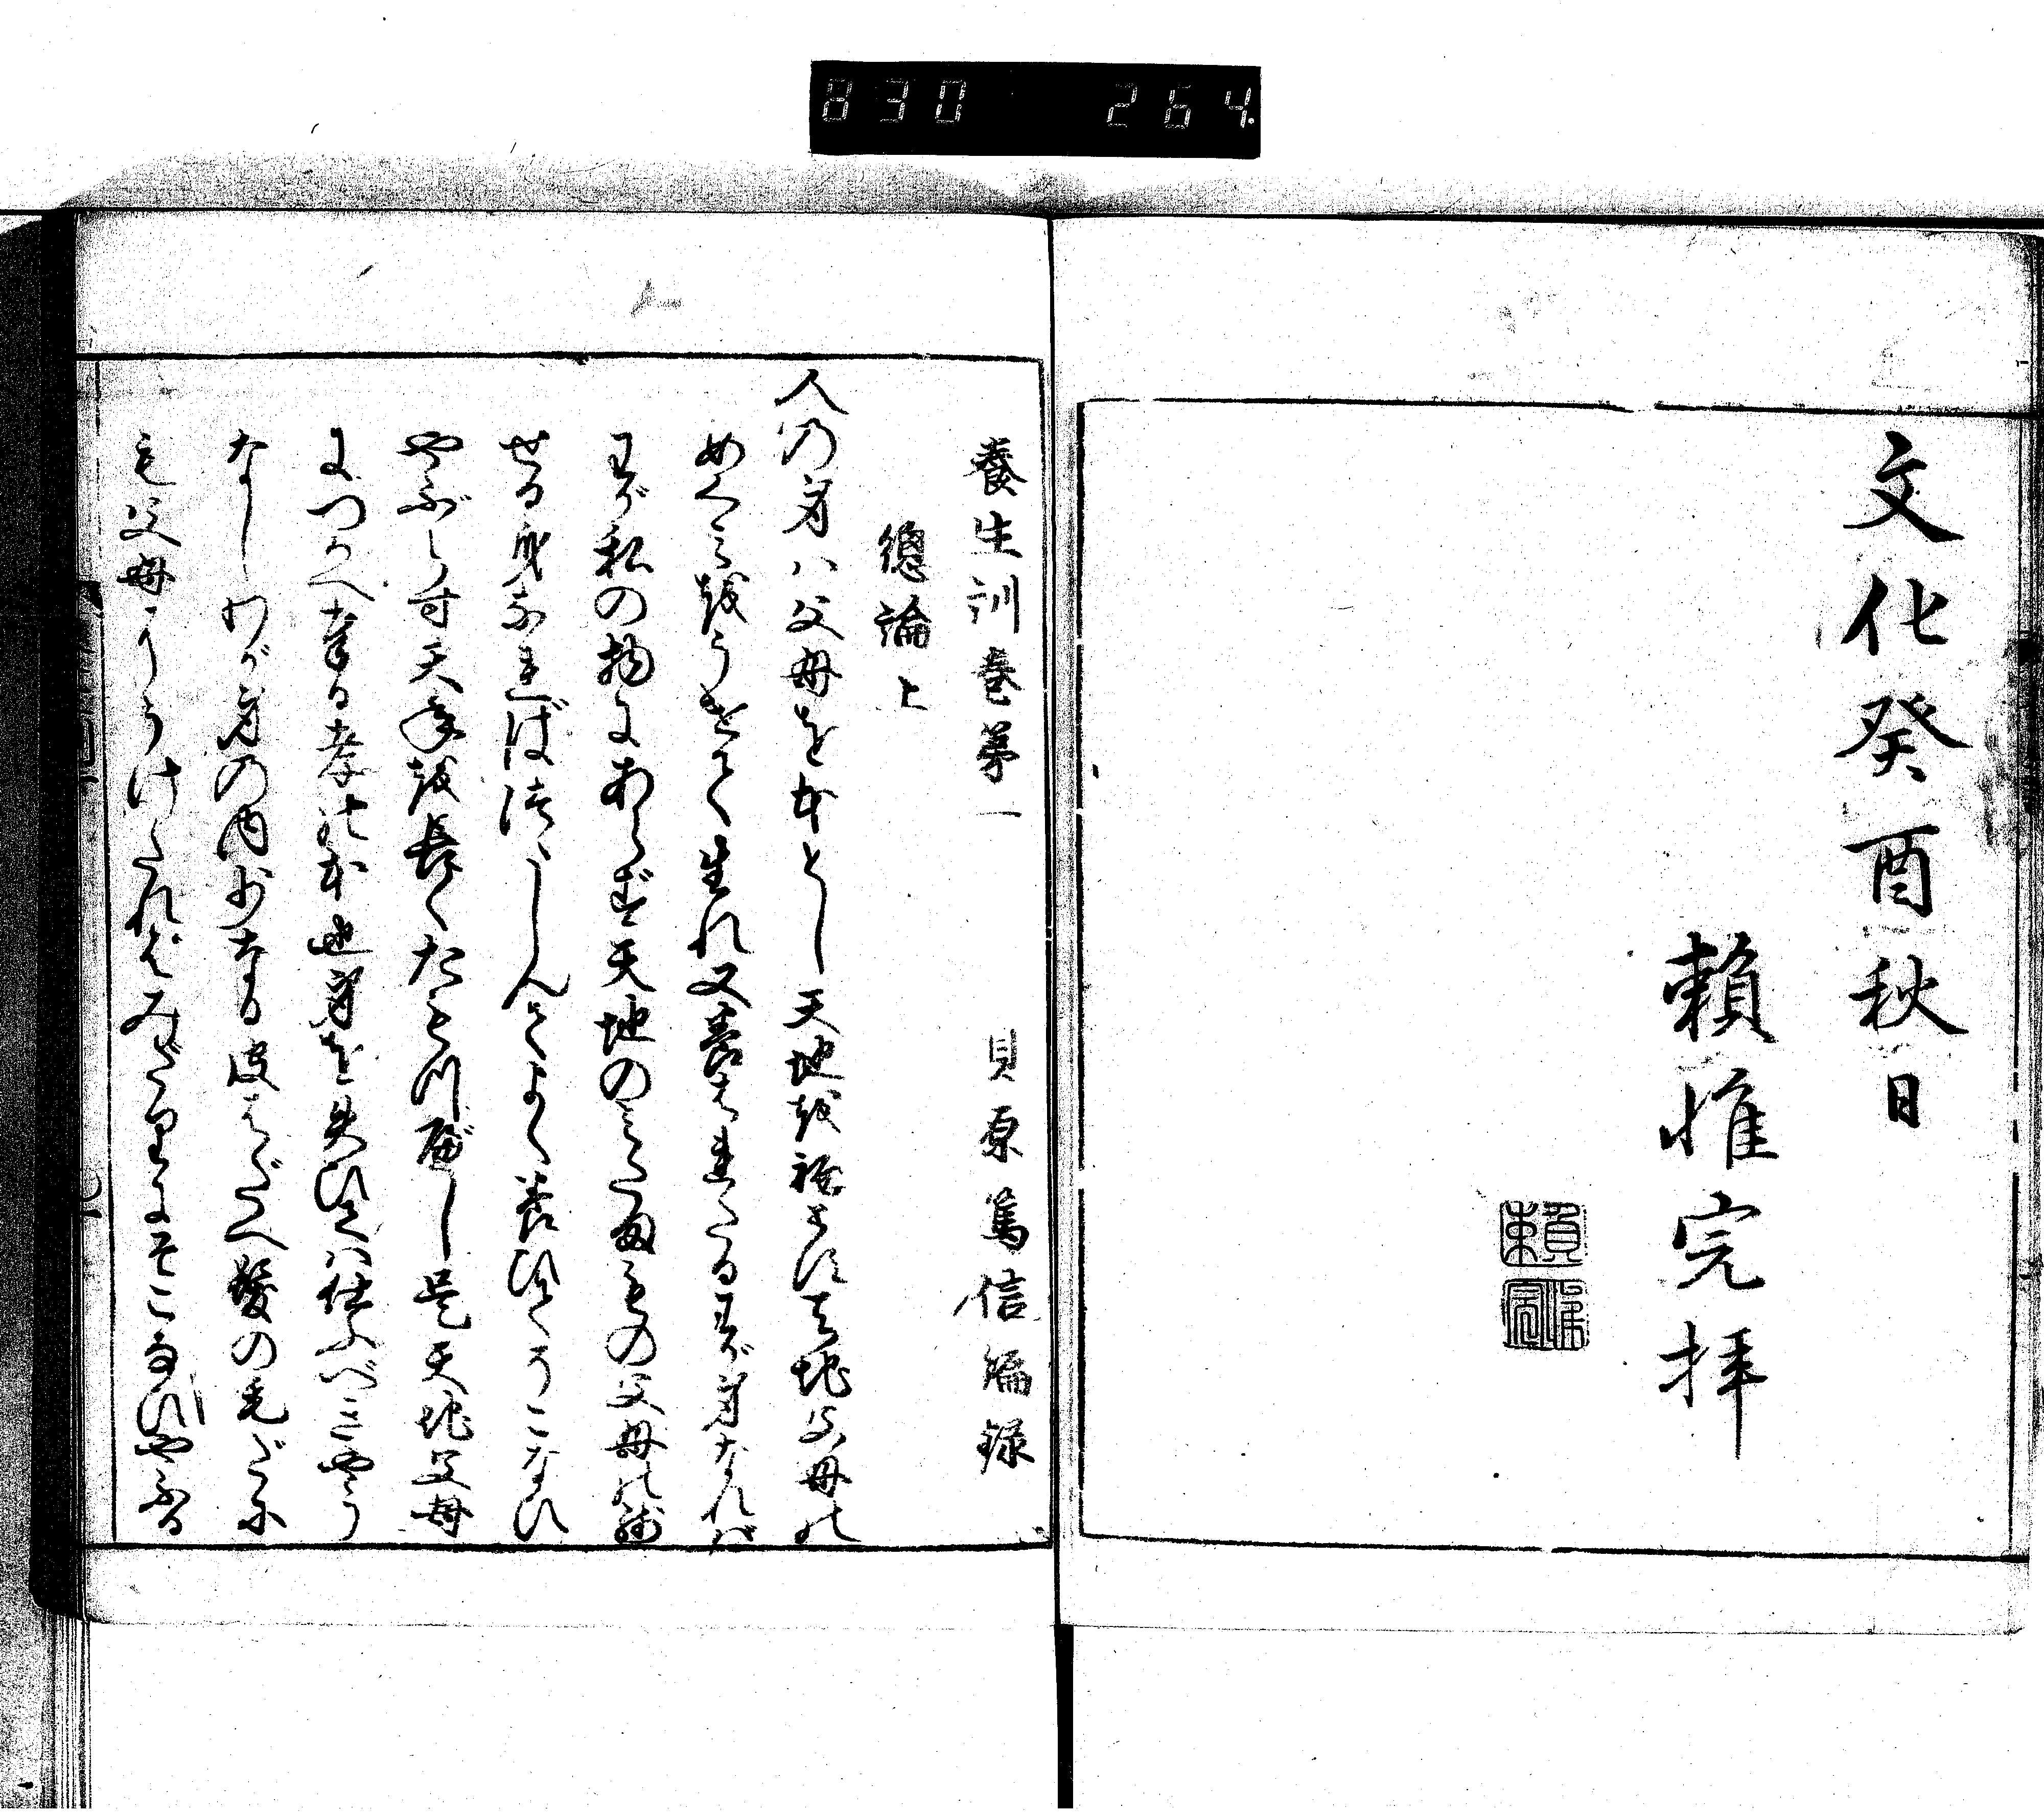 830 264
文化癸酉秋日
賴惟完拝
賴
惟完
養生訓巻第一 貝原篤信編録
總論上
人の身ハ父母を本とし天地を初とす天地父母の
めぐみをうけて生れ又養はれたるわが身なれバ
わが私の物にあらず天地のみたまもの父母の残
せる身なればつゝしんでよく養ひてそこなひ
やぶらず天年を長くたもつべし是天地父母
につかへ奉る孝の本也身を失ひてハ仕ふべきやう
なしわが身の内少なる皮はだへ髪の毛だに
も父母にうけたればみだりにそこなひやぶる